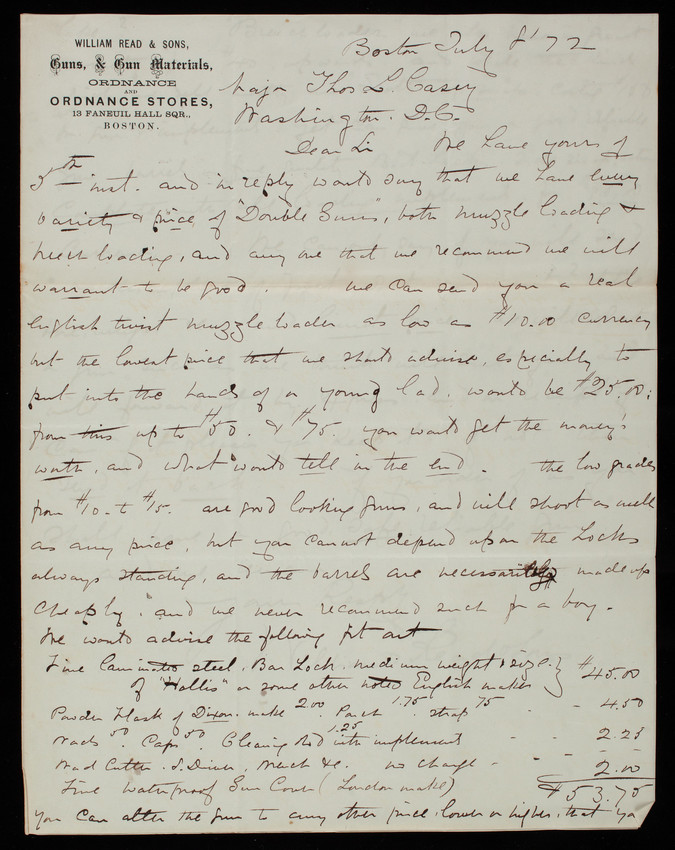 WILLIAM READ & SONS,
Guns, & Gun Materials,
ORDNANCE
AND
ORDNANCE STORES,
13 FANEUIL HALL SQR.,
BOSTON.
Boston July 8' 72
Major Thos L. Casey
Washington. D.C.
Dear Sir We have yours of
5th inst. and in reply would say that we have every
variety & price of "Double Guns", both muzzle loading &
breech loading, and any one that we recommend we will
warrant to be good. We can send you a real
English twist muzzle loader as low as $10.00 currency
but the lowest price that we should advise, especially to
put into the hands of a young lad. would be $25.00;
from this up to $50. & $75. you would get the money's
worth, and what would tell in the end. the low grades
from $10. to $15. are good looking guns, and will shoot as well
as any price, but you cannot depend upon the Locks
always standing, and the barrels are necessarily made up
cheaply. and we never recommend such for a boy.
We would advise the following fit out
Fine laminated steel. Bar Lock. medium weight & size.} $45.00
of "Hollis" or some other noted English maker
Powder Flask of Dixon make 2.00. Pouch 1.75. strap 75 - - 4.50
Wads 50. Caps 50. Cleaning Rod with implements 1.25 - - 2.25
Wad Cutter. S. Driver, Wrench &c. no charge - - -
Fine Waterproof Gun Cover (London make) 2.00
$53.75
You can alter the gun to any other price, lower or higher, that you